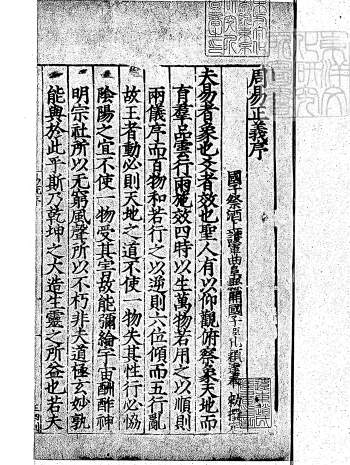 周易正義序
國子祭酒上護軍曲阜縣開國子臣孔穎達奉 勑撰定
夫易者象也爻者效也聖人有以仰觀俯察象天地而
育羣品雲行雨施效四時以生萬物若用之以順則
兩儀序而百物和若行之以逆則六位傾而五行亂
故王者動必則天地之道不使一物失其性行必協
陰陽之宜不使一物受其害故能彌綸宇宙酬酢神
明宗社所以无窮風聲所以不朽非夫道極玄妙孰
能與於此乎斯乃乾坤之大造生靈之所益也若夫